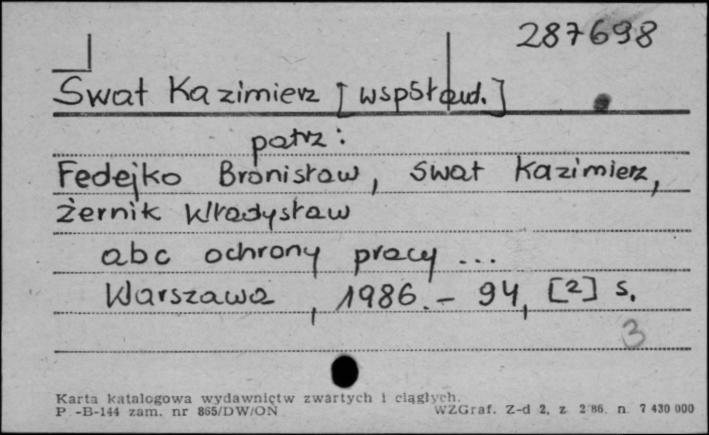 287698
Swat Kazimierz [współaut.]
patrz:
Fedejko Bronisław, Swat Kazimierz,
Żernik Władysław
abc ochrony pracy ...
Warszawa, 1986. – 94, [2] s.
3
Karta katalogowa wydawnictw zwartych i ciągłych.
P.-B-144 zam. nr 865/DW/ON WZGraf. Z-d 2, z. 2 86. n. 7 430 000